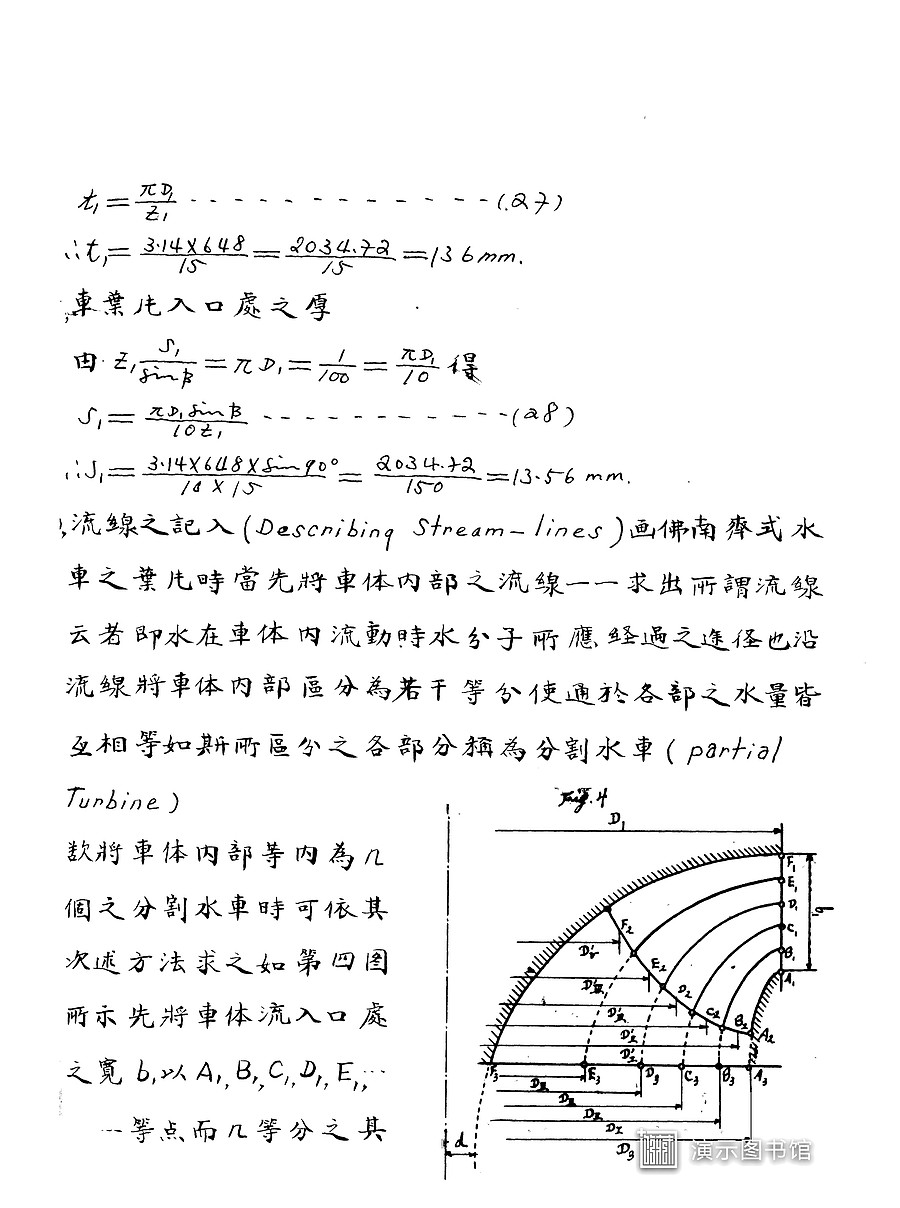 t₁=πD₁/Z₁ ------------- (27)
∴t₁=3.14×648/15=2034.72/15=136mm.
車葉片入口處之厚
由 Z₁ S₁/sinβ=πD₁=1/100=πD₁/10 得
S₁=πD₁sinβ/10Z₁ ----------- (28)
∴S₁=3.14×648×sin90°/10×15=2034.72/150=13.56 mm.
流線之記入(Describing Stream-lines)画佛南齊式水
車之葉片時當先將車体内部之流線一一求出所謂流線
云者即水在車体内流動時水分子所應経過之途径也沿
流線將車体内部區分為若干等分使通於各部之水量皆
互相等如斯所區分之各部分稱為分割水車(partial
Turbine)
欵將車体内部等内為几
個之分割水車時可依其
次述方法求之如第四图
所示先將車体流入口處
之寬b₁以A₁,B₁,C₁,D₁,E₁,…
…等点而几等分之其
Fig.4
D₁
F₁
E₁
D₁
C₁
B₁
A₁
b₁
F₂
E₂
D₂
C₂
B₂
A₂
F₃
E₃
D₃
C₃
B₃
A₃
D₃
d
演示图书馆